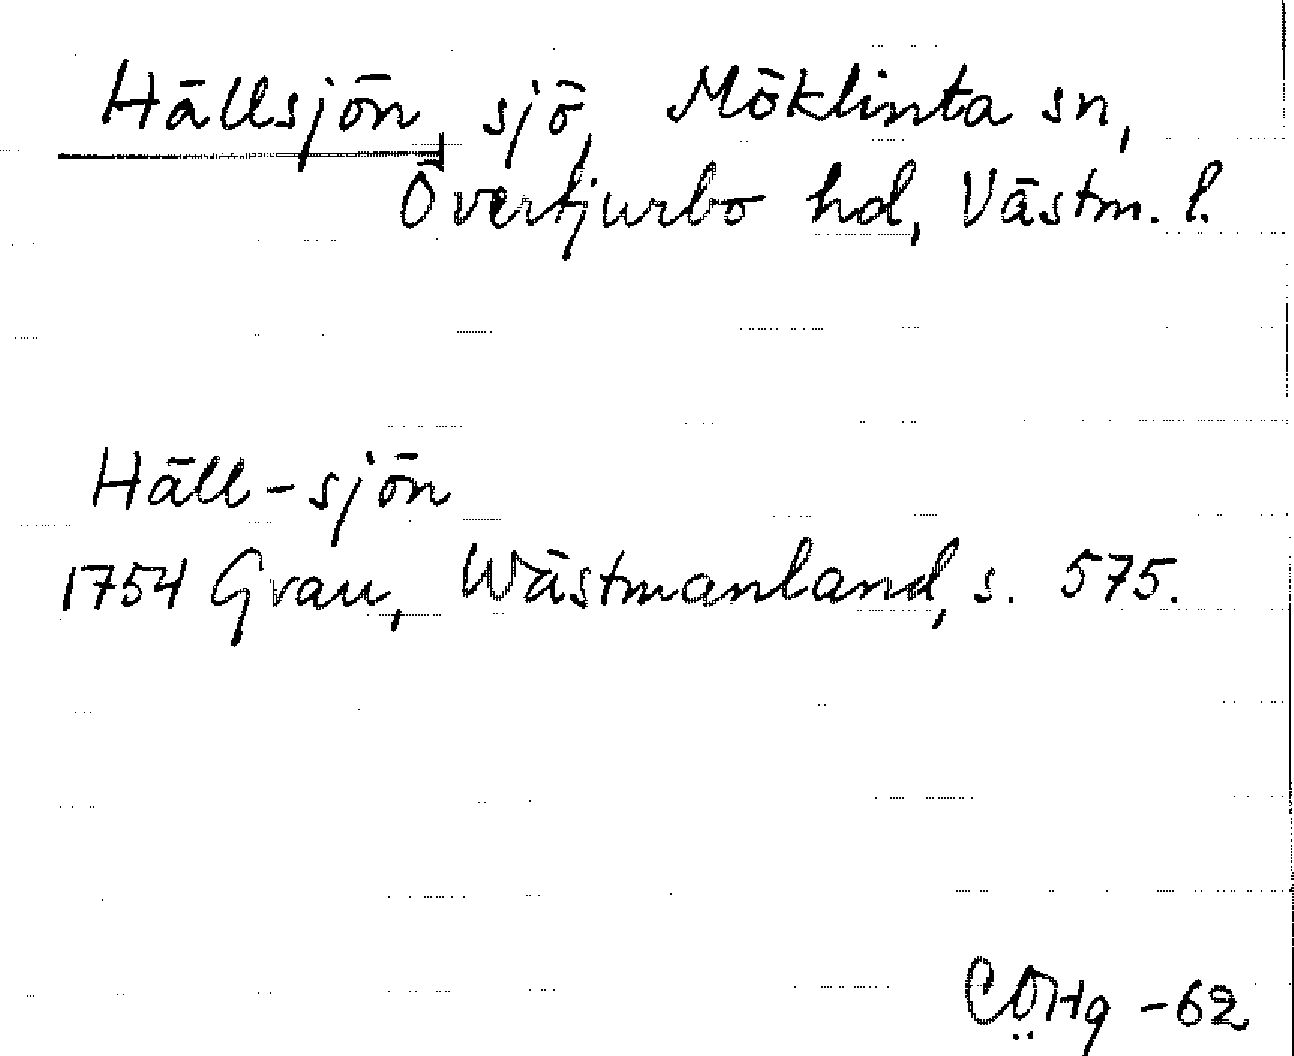 Hällsjön sjö, Möklinta sn,
Övertjurbo hd, Västm. l.
Häll-sjön
1754 Grau, Wästmanland, s. 575.
CÖHg -62